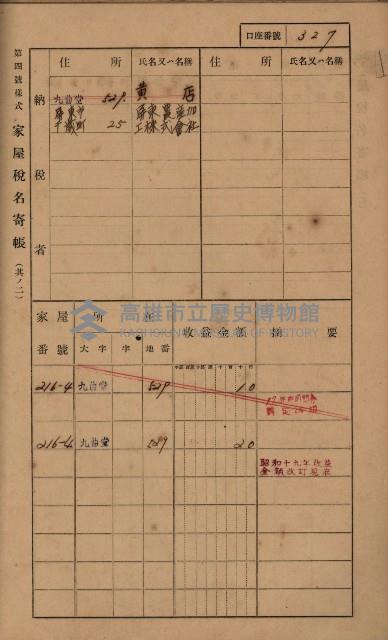 口座番號 327
第四號樣式 家屋稅名寄帳 (其ノ二)
納稅者
住所 氏名又ハ名稱 住所 氏名又ハ名稱
九曲堂 529 黃 店
屏東市 25 屏東農產加
工株式會社
家屋番號 所在 收益金額 摘要
大字 字 地番
216-4 九曲堂 529 10
216-4 九曲堂 529 20
昭和十九年改益
金額改訂
高雄市立歷史博物館
KAOHSIUNG MUSEUM OF HISTORY